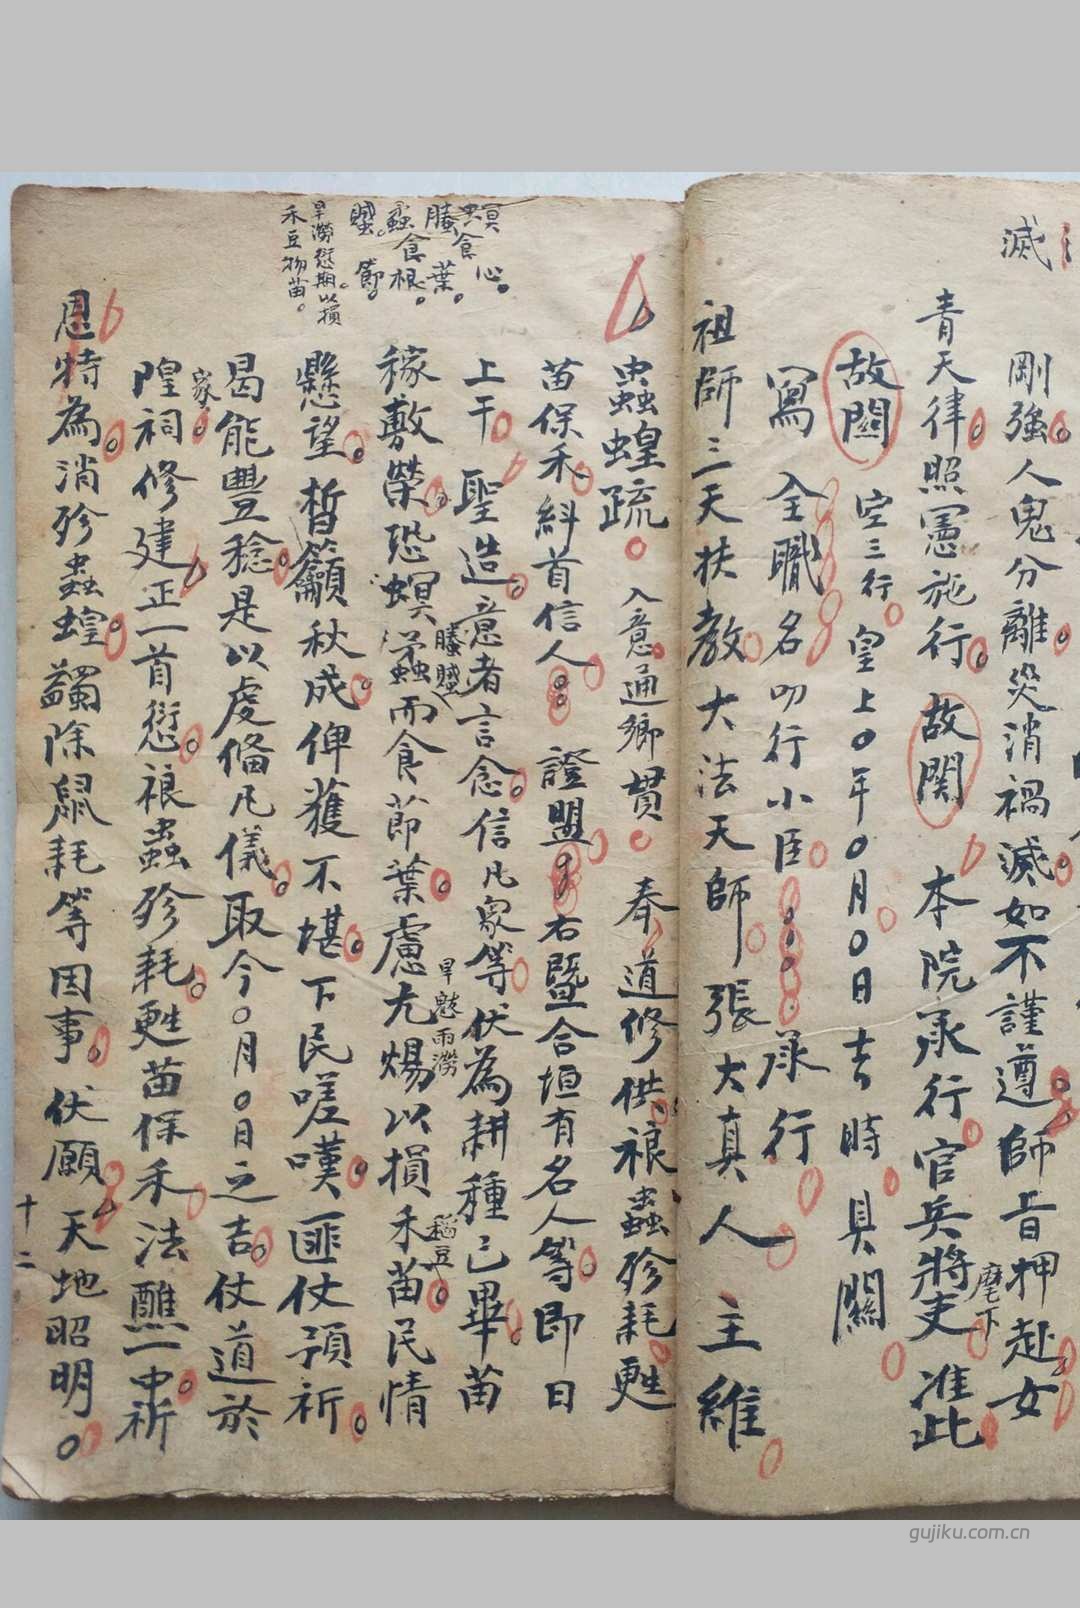 滅
剛強人鬼分離災消禍滅如不謹遵師旨押赴女
青天律照憲施行故關 本院承行官兵將吏准此
麾下
故關 空三行 皇上〇年〇月〇日吉時具關
寫 全職名叩行小臣 承行
祖師三天扶教大法天師張大真人 主維
蟲蝗疏 入意通鄉貫 奉道修供禳蟲殄耗甦
苗保禾糾首信人 證盟 右暨合垣有名人等即日
上干 聖造意者言念信凡眾等伏為耕種已畢苗
稼敷榮恐螟螣蟊而食節葉慮亢煬以損禾苗民情
螣蠈
旱魃雨澇
稻豆
懸望皙籲秋成俾獲不堪下民嗟嘆匪仗預祈
曷能豐稔是以虔俻凡儀取今〇月〇日之吉仗道於
家
隍祠修建正一首愆禳蟲殄耗甦苗保禾法醮一中祈
恩特為消殄蟲蝗蠲除鼠耗等因事伏願天地昭明
螟食心
螣食葉
蟊食根
蠈 節
旱澇愆期以損
禾豆物苗
十二
gujiku.com.cn